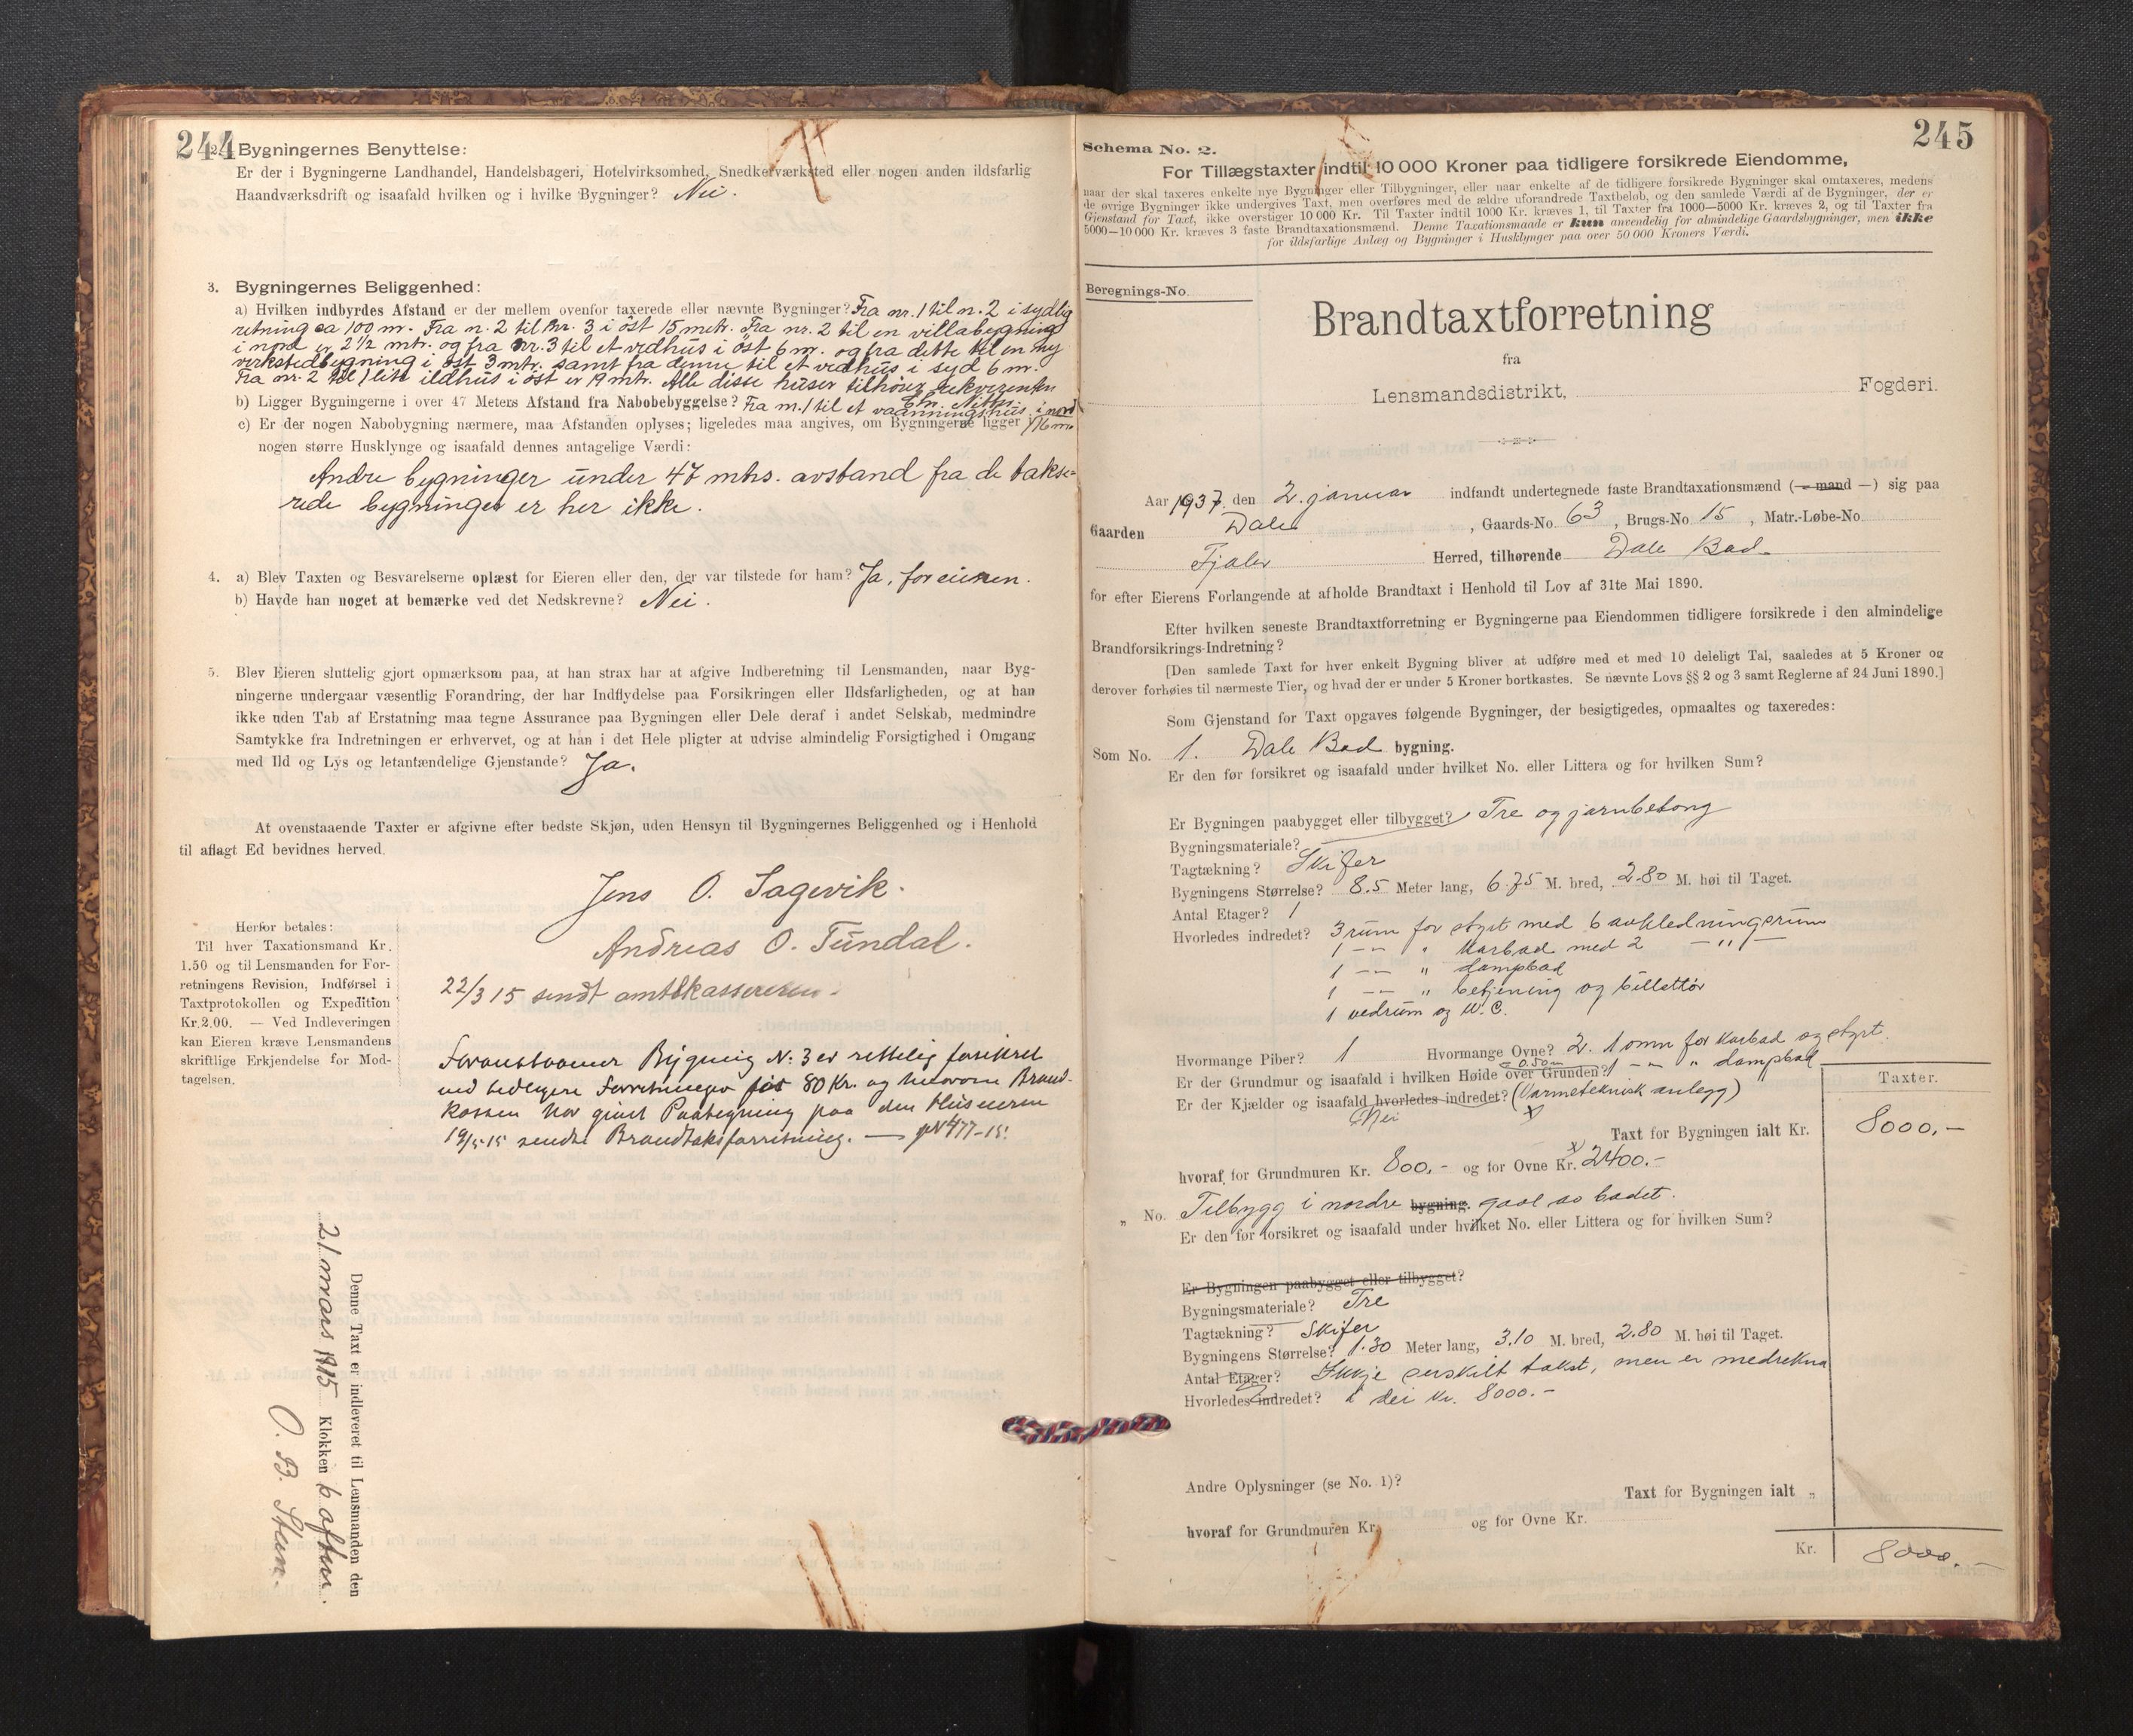 244
2. Bygningernes Benyttelse:
Er der i Bygningerne Landhandel, Handelsbageri, Hotelvirksomhed, Snedkerværksted eller nogen anden ildsfarlig
Haandværksdrift og isaafald hvilken og i hvilke Bygninger? Nei.
3. Bygningernes Beliggenhed:
a) Hvilken indbyrdes Afstand er der mellem ovenfor taxerede eller nævnte Bygninger? Fra nr. 1 til n. 2 i sydlig
retning ca 100 m. Fra n. 2 til Nr. 3 i öst 15 metr. Fra nr. 2 til en villabygning
i nord er 2 1/2 mtr. og fra Nr. 3 til et vedhus i öst 6 m. og fra dette til en ny
verkstedbygning i öst 3 mtr. samt fra denne til et vedhus i syd 6 m.
Fra nr. 2 til 1 lite ildhus i öst er 19 mtr. Alle disse huser tilhörer rekvirenten
b) Ligger Bygningerne i over 47 Meters Afstand fra Nabobebyggelse? Fra nr. 1 til et vaaningshus i nord
c) Er der nogen Nabobygning nærmere, maa Afstanden oplyses; ligeledes maa angives, om Bygningerne ligger i 16 m
nogen større Husklynge og isaafald dennes antagelige Værdi:
Andre bygninger under 47 mtrs. avstand fra de takse-
rede bygninger er her ikke.
4. a) Blev Taxten og Besvarelserne oplæst for Eieren eller den, der var tilstede for ham? Ja, for eieren.
b) Havde han noget at bemærke ved det Nedskrevne? Nei.
5. Blev Eieren sluttelig gjort opmærksom paa, at han strax har at afgive Indberetning til Lensmanden, naar Byg-
ningerne undergaar væsentlig Forandring, der har Indflydelse paa Forsikringen eller Ildsfarligheden, og at han
ikke uden Tab af Erstatning maa tegne Assurance paa Bygningen eller Dele deraf i andet Selskab, medmindre
Samtykke fra Indretningen er erhvervet, og at han i det Hele pligter at udvise almindelig Forsigtighed i Omgang
med Ild og Lys og letantændelige Gjenstande? Ja.
At ovenstaaende Taxter er afgivne efter bedste Skjøn, uden Hensyn til Bygningernes Beliggenhed og i Henhold
til aflagt Ed bevidnes herved.
Jens O. Sagevik.
Andreas O. Tundal.
22/3 15 sendt amtskassereren.
Herfor betales:
Til hver Taxationsmand Kr.
1.50 og til Lensmanden for For-
retningens Revision, Indførsel i
Taxtprotokollen og Expedition
Kr. 2.00. — Ved Indleveringen
kan Eieren kræve Lensmandens
skriftlige Erkjendelse for Mod-
tagelsen.
Foranstaaende Bygning N: 3 er rettelig forsikret
ved tidligere Forretninger for 80 Kr. og hvorom Brand-
kassen har givet Paategning paa den Huseieren
19/5-15 sendte Brandtaksforretning. — 477-15.
Denne Taxt er indleveret til Lensmanden den
21 mars 1915 Klokken 6 aften.
O. B. Steen.
245
Schema No. 2.
For Tillægstaxter indtil 10 000 Kroner paa tidligere forsikrede Eiendomme,
naar der skal taxeres enkelte nye Bygninger eller Tilbygninger, eller naar enkelte af de tidligere forsikrede Bygninger skal omtaxeres, medens
de øvrige Bygninger ikke undergives Taxt, men overføres med de ældre uforandrede Taxtbeløb, og den samlede Værdi af de Bygninger, der er
Gjenstand for Taxt, ikke overstiger 10 000 Kr. Til Taxter indtil 1000 Kr. kræves 1, til Taxter fra 1000—5000 Kr. kræves 2, og til Taxter fra
5000—10 000 Kr. kræves 3 faste Brandtaxationsmænd. Denne Taxationsmaade er kun anvendelig for almindelige Gaardsbygninger, men ikke
for ildsfarlige Anlæg og Bygninger i Husklynger paa over 50 000 Kroners Værdi.
Beregnings-No.
Brandtaxtforretning
fra
Lensmandsdistrikt, Fogderi.
Aar 1937, den 2. januar indfandt undertegnede faste Brandtaxationsmænd (— mand —) sig paa
Gaarden Dale, Gaards-No. 63, Brugs-No. 15, Matr.-Løbe-No.
Fjaler Herred, tilhørende Dale Bad
for efter Eierens Forlangende at afholde Brandtaxt i Henhold til Lov af 31te Mai 1890.
Efter hvilken seneste Brandtaxtforretning er Bygningerne paa Eiendommen tidligere forsikrede i den almindelige
Brandforsikrings-Indretning?
[Den samlede Taxt for hver enkelt Bygning bliver at udføre med et med 10 deleligt Tal, saaledes at 5 Kroner og
derover forhøies til nærmeste Tier, og hvad der er under 5 Kroner bortkastes. Se nævnte Lovs §§ 2 og 3 samt Reglerne af 24 Juni 1890.]
Som Gjenstand for Taxt opgaves følgende Bygninger, der besigtigedes, opmaaltes og taxeredes:
Som No. 1. Dale Bad bygning.
Er den før forsikret og isaafald under hvilket No. eller Littera og for hvilken Sum?
Er Bygningen paabygget eller tilbygget? Tre og jarnbetong
Bygningsmateriale?
Tagtækning? Skifer
Bygningens Størrelse? 8.5 Meter lang, 6.75 M. bred, 2.80 M. høi til Taget.
Antal Etager? 1
Hvorledes indredet? 3 rum for styrt med 6 avkledningsrum
1 — " Karbad med 2 — " —
1 — " dampbad
1 — " betjening og billettör
1 vedrum og W.C.
Hvormange Piber? 1 Hvormange Ovne? 2. 1 omn for karbad og styrt.
Er der Grundmur og isaafald i hvilken Høide over Grunden? 0.50 m 1 — " dampbad
Er der Kjælder og isaafald hvorledes indredet? (Varmeteknisk anlegg)
Nei x
Taxter.
Taxt for Bygningen ialt Kr. 8000,-
hvoraf for Grundmuren Kr. 800,- og for Ovne Kr. x 2400.-
" No. Tilbygg i nordre bygning. gavl av badet.
Er den før forsikret og isaafald under hvilket No. eller Littera og for hvilken Sum?
Er Bygningen paabygget eller tilbygget?
Bygningsmateriale? Tre
Tagtækning? Skifer
Bygningens Størrelse? 1.30 Meter lang, 3.10 M. bred, 2.80 M. høi til Taget.
Antal Etager? Ikkje serskilt takst, men er medrekna
Hvorledes indredet? i dei kr. 8000.-
Andre Oplysninger (se No. 1)?
Taxt for Bygningen ialt "
hvoraf for Grundmuren Kr. og for Ovne Kr.
Kr. 8000.-